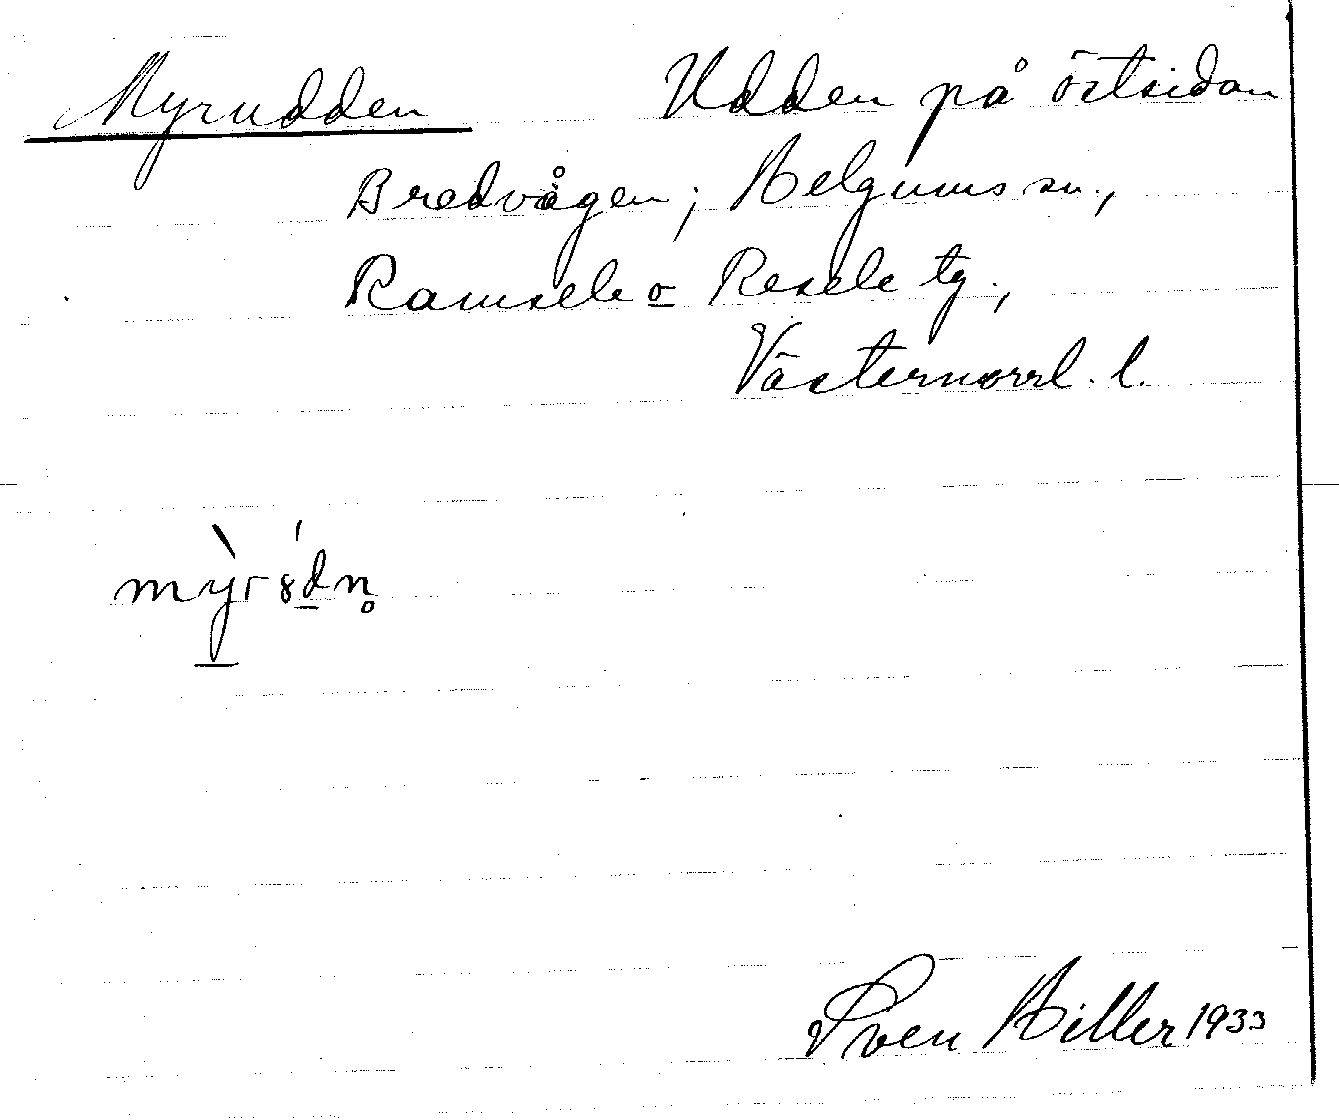 Myrudden Udden på östsidan
Bredvågen; Helgums sn.,
Ramsele o Resele tg.,
Västernorrl. l.
mỳr8́dn̥
Sven Hiller 1933